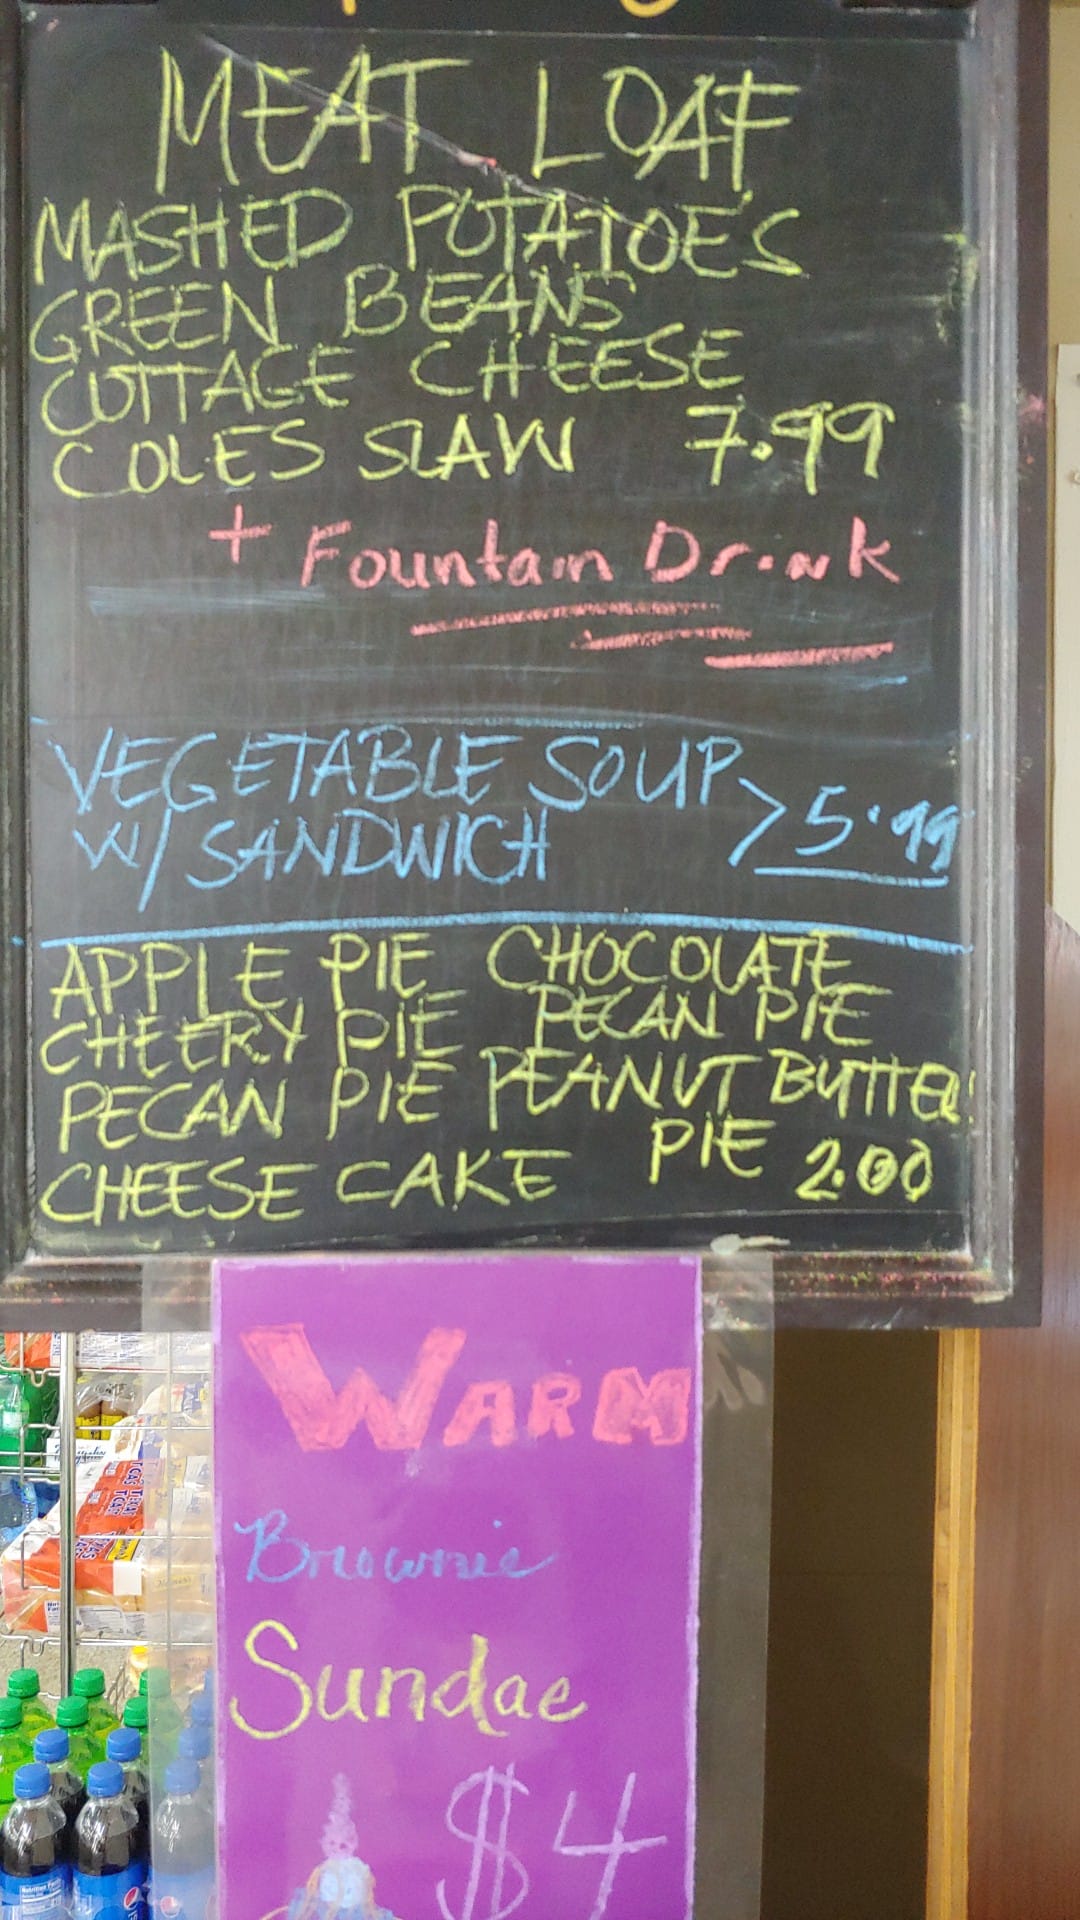 MEAT LOAF
MASHED POTATOE'S
GREEN BEANS
COTTAGE CHEESE
COLES SLAW 7.99
+ Fountain Drink
VEGETABLE SOUP
W/ SANDWICH > 5.99
APPLE PIE CHOCOLATE
CHEERY PIE PECAN PIE
PECAN PIE PEANUT BUTTER
PIE 2.00
CHEESE CAKE
WARM
Brownie
Sundae
$4